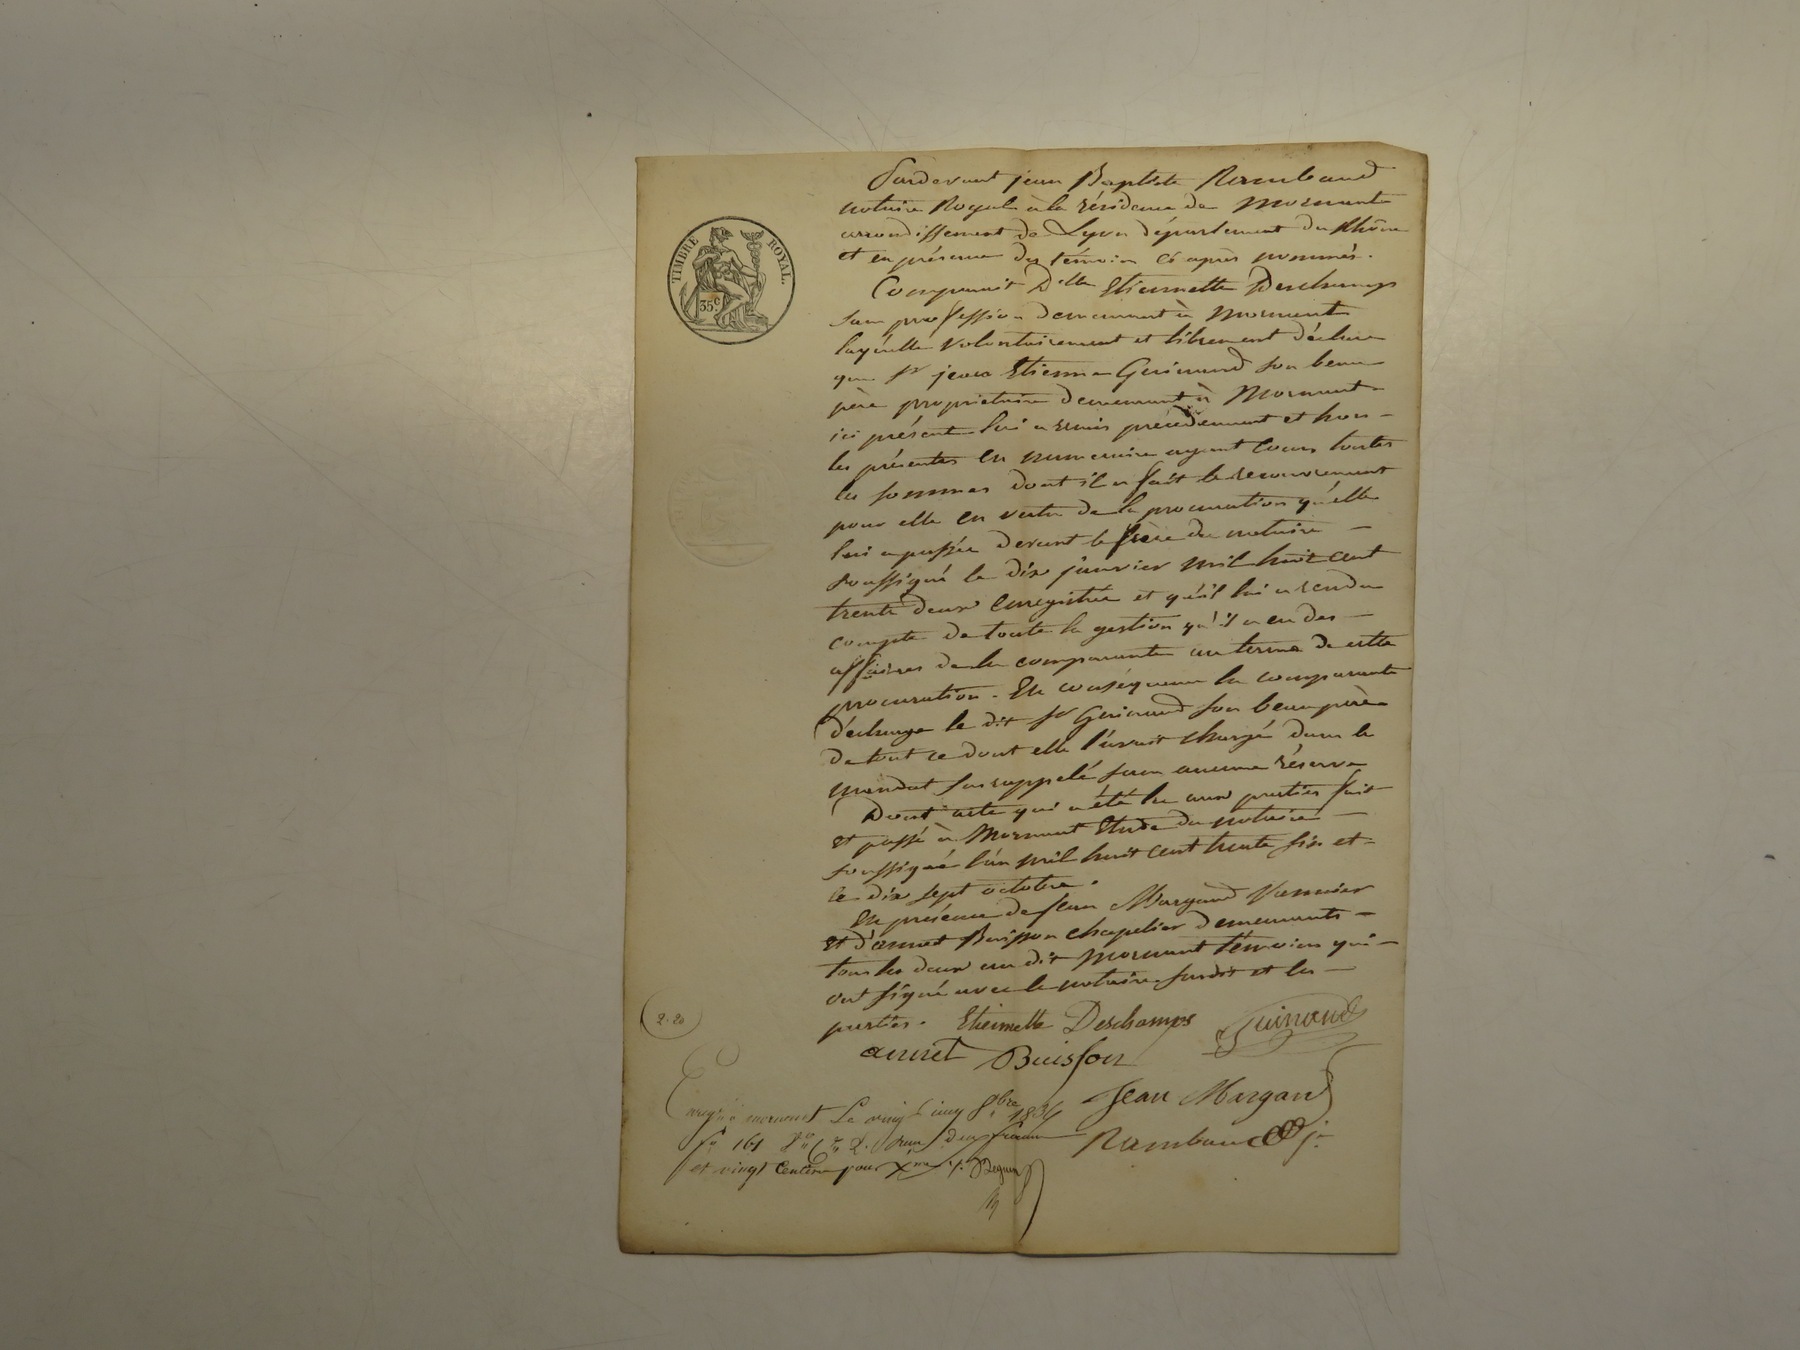 TIMBRE ROYAL.
35 c
Pardevant jean Baptiste Rambaud
notaire Royal à la résidence de Mornant
arrondissement de Lyon département du Rhône
et en présence des témoins ci après nommés.
Comparait Dlle Etiennette Deschamps
sans profession demeurant à Mornant
laquelle volontairement et librement déclare
que Sr jean Etienne Guinand son beau
père propriétaire demeurant à Mornant
ici présent lui a remis précédemment et hors
les présentes en numéraire ayant cours toutes
les sommes dont il a fait le recouvrement
pour elle en vertu de la procuration qu'elle
lui a passée devant le père du notaire
soussigné le dix janvier mil huit cent
trente deux enregistrée et qu'il lui a rendu
compte de toute la gestion qu'il a eu des
affaires de la comparante au terme de cette
procuration. En conséquence la comparante
décharge le dit Sr Guinand son beau père
de tout ce dont elle l'avait chargé dans le
mandat sus rappelé sans aucune réserve
Dont acte qui a été lu aux parties fait
et passé à Mornant Etude du notaire
soussigné l'an mil huit cent trente six et
le dix sept octobre.
En présence de jean Margand Vannier
et d'annet Buisson chapelier demeurants
tous les deux au dit Mornant témoins qui
ont signé avec le notaire susdit et les
parties. Etiennette Deschamps Guinand
2.20
annet Buisson
Jean Margand
Rambaud jn
Enregé à mornant Le vingt cinq 8bre 1836
fo 161 Ro Reçu deux francs
et vingt Centimes pour Xme